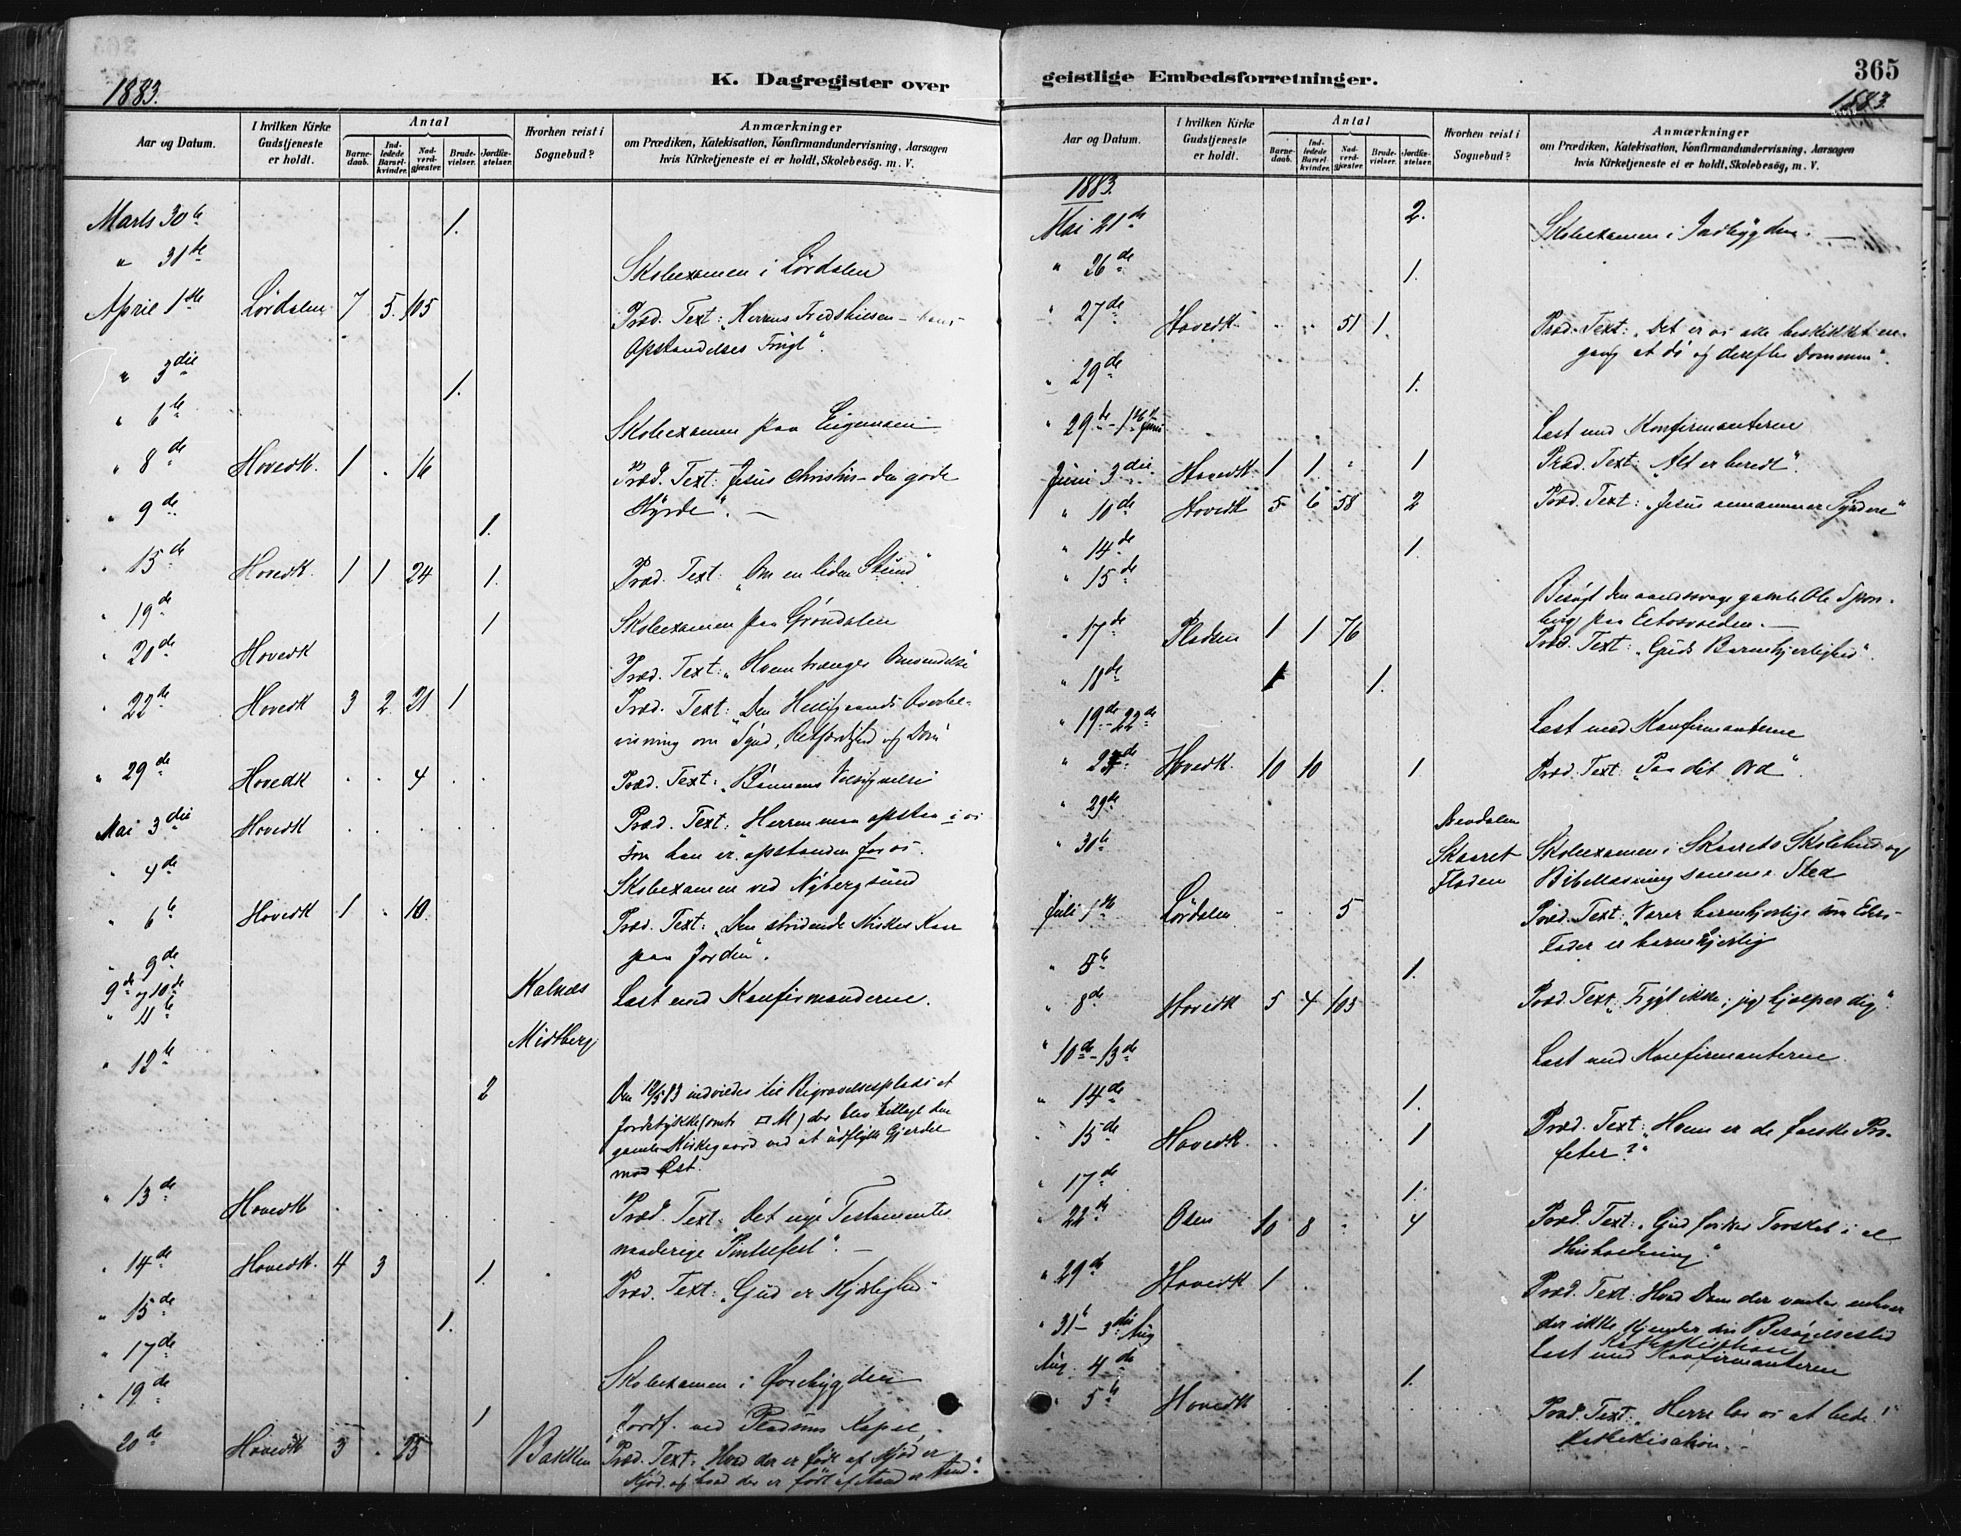 1883.
K. Dagregister over
Aar og Datum.
I hvilken Kirke Gudstjeneste er holdt.
Antal
Barnedaab.
Indledede Barselkvinder.
Nadverdgjæster.
Brudevielser.
Jordfæstelser.
Hvorhen reist i Sognebud?
Anmærkninger
om Prædiken, Katekisation, Konfirmandundervisning, Aarsagen
hvis Kirketjeneste ei er holdt, Skolebesög, m. V.
Marts 30te 1.
" 31te Skoleexamen i Lördalen
April 1ste Lördalen 7 5. 105 Præd. Text: "Herrens Fredshilsen - hans
Opstandelses Frugt".
" 3die 1.
" 6te Skoleexamen paa
" 8de Hovedk. 1 . 16 Præd. Text: Jesus Christus - den gode
Hyrde".
" 9de 1.
" 15de Hovedk. 1 1 24 1. Præd. Text: "Om en liden Stund"
" 19de 1 Skoleexamen paa Gröndalen
" 20de Hovedk Præd. Text: "Hvem trænger Omvendelse
" 22de Hovedk 3 2 21 1 Præd. Text: "Den Helligaands Overbe-
visning om Synd, Retfærdighed og Dom"
" 29de Hovedk . . 4 . . Præd. Text: "Bönnens Velsignelse
Mai 3die Hovedk . . . . . Præd. Text: "Herren maa opstaa i os
som han er opstanden for os.
" 4de Skoleexamen ved Nybergsund
" 6te Hovedk 1 . 10. Præd. Text: "Den stridende Kirkes Kaar
paa Jorden".
" 9de
9de og 10de Kalnæs Læst med Konfirmanderne.
" 11te Midtberg
" 12te 2 Den 12/5 83 indviedes til Begravelsesplads et
Jordstykke ( □ M) der blev tillagt den
gamle Kirkegaard ved at udflytte Gjerdet
mod Öst.
" 13de Hovedk . . . . . Præd. Text: "Det nye Testamentes
naaderige Pintsefest".
" 14de Hovedk. 4 3 1. Præd. Text: "Gud er Kjærlighed"
" 15de 1.
" 17de Skoleexamen i Örebygden
" 19de 1 Jordf. ved Pladsens Kapel
20de Hovedk 5 . 25 Bakken Præd. Text: "Hvad der er födt af Kjöd er
Kjöd og hvad der er födt af Aand er Aand".
geistlige Embedsforretninger.
365
1883.
Aar og Datum.
I hvilken Kirke Gudstjeneste er holdt.
Antal
Barnedaab.
Indledede Barselkvinder.
Nadverdgjæster.
Brudevielser.
Jordfæstelser.
Hvorhen reist i Sognebud?
Anmærkninger
om Prædiken, Katekisation, Konfirmandundervisning, Aarsagen
hvis Kirketjeneste ei er holdt, Skolebesög, m. V.
1883.
Mai 21de 2. Skoleexamen i Indbygden.
" 26de 1.
" 27de Hovedk . . 51 1. Præd. Text: "Det er os alle beskikket en-
gang at dö og derefter Dommen".
" 29de 1.
" 29de - 1ste Juni Læst med Konfirmanterne
Juni 3die Hovedk 1 1 . 1 Præd. Text: "Alt er beredt".
" 10de Hovedk 5 6 58 2 Præd. Text: "Jesus annammer Syndere"
" 14de 1.
" 15de Besögt den aandssvage gamle Ole
paa
" 17de Pladsen 1 1 76 Præd. Text: "Guds Barmhjertighed".
" 18de 1 1.
" 19de - 22de Læst med Konfirmanterne
" 24de Hovedk. 10 10 1. Præd. Text: "Paa dit Ord".
" 29de
" 30te Skaaret Skoleexamen i Skaarets Skolehus og
Floden Bibellæsning samme Sted
Juli 1ste Lördalen . . 5 Præd. Text: "Værer barmhjertige som Eders
Fader er barmhjertig
" 5te 1.
" 8de Hovedk 5 4 105 Præd. Text: "Frygt ikke; jeg hjælper dig".
" 10de - 13de Læst med Konfirmanterne.
" 14de 1.
" 15de Hovedk. 1 Præd. Text: "Hvem er de falske Pro-
feter?"
" 17de 1.
" 22de Osen 10 8 . 4 Præd. Text: "Gud forker Torskab i al
Husholdning".
" 29de Hovedk 1 Præd. Text: Hvad Dom der venter enhver
der ikke kjender sin Besögelsestid
Katekisation
" 31te - 3die Aug Læst med Konfirmanterne
Aug. 4de 1.
" 5te Hovedk Præd. Text: "Herre lær os at bede!"
Katekisation.